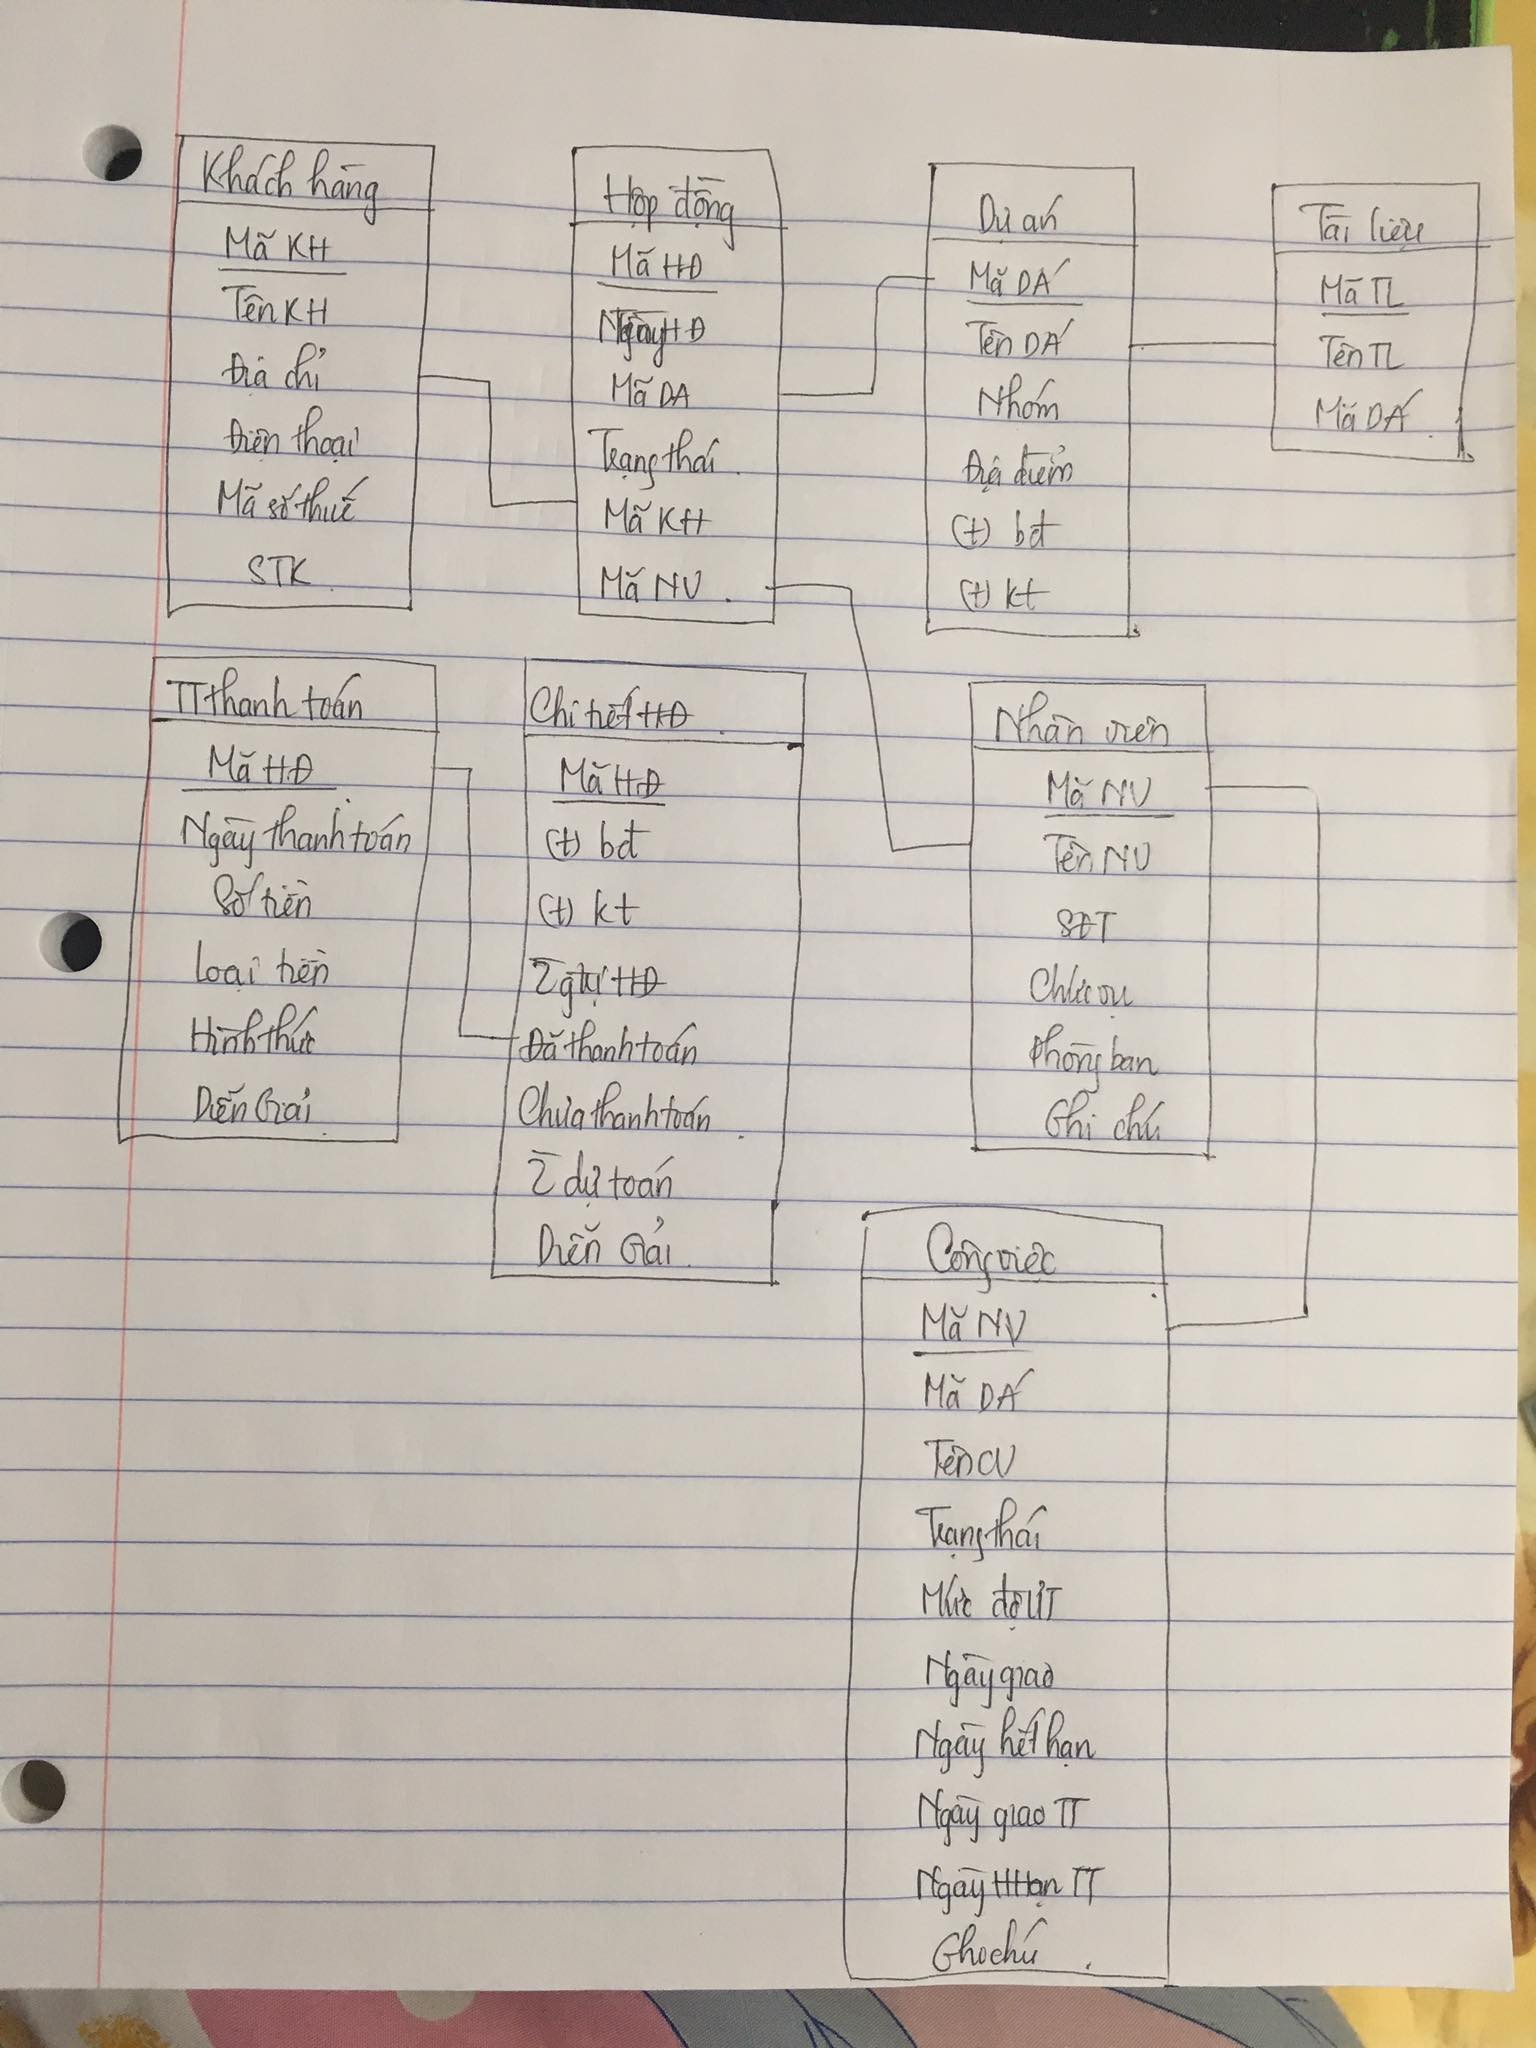 Khách hàng
Mã KH
Tên KH
Địa chỉ
Điện thoại
Mã số thuế
STK
Hợp đồng
Mã HĐ
Ngày HĐ
Mã DA
Trạng thái
Mã KH
Mã NV
Dự án
Mã DÁ
Tên DÁ
Nhóm
Địa điểm
(t) bđ
(t) kt
Tài liệu
Mã TL
Tên TL
Mã DÁ
TT thanh toán
Mã HĐ
Ngày thanh toán
Số tiền
Loại tiền
Hình thức
Diễn Giải
Chi tiết HĐ
Mã HĐ
(t) bđ
(t) kt
Σ gtrị HĐ
Đã thanh toán
Chưa thanh toán
Σ dự toán
Diễn Giải
Nhân viên
Mã NV
Tên NV
SĐT
Chức vụ
Phòng ban
Ghi chú
Công việc
Mã NV
Mã DÁ
Tên CV
Trạng thái
Mức độ ƯT
Ngày giao
Ngày hết hạn
Ngày giao TT
Ngày HHạn TT
Ghi chú